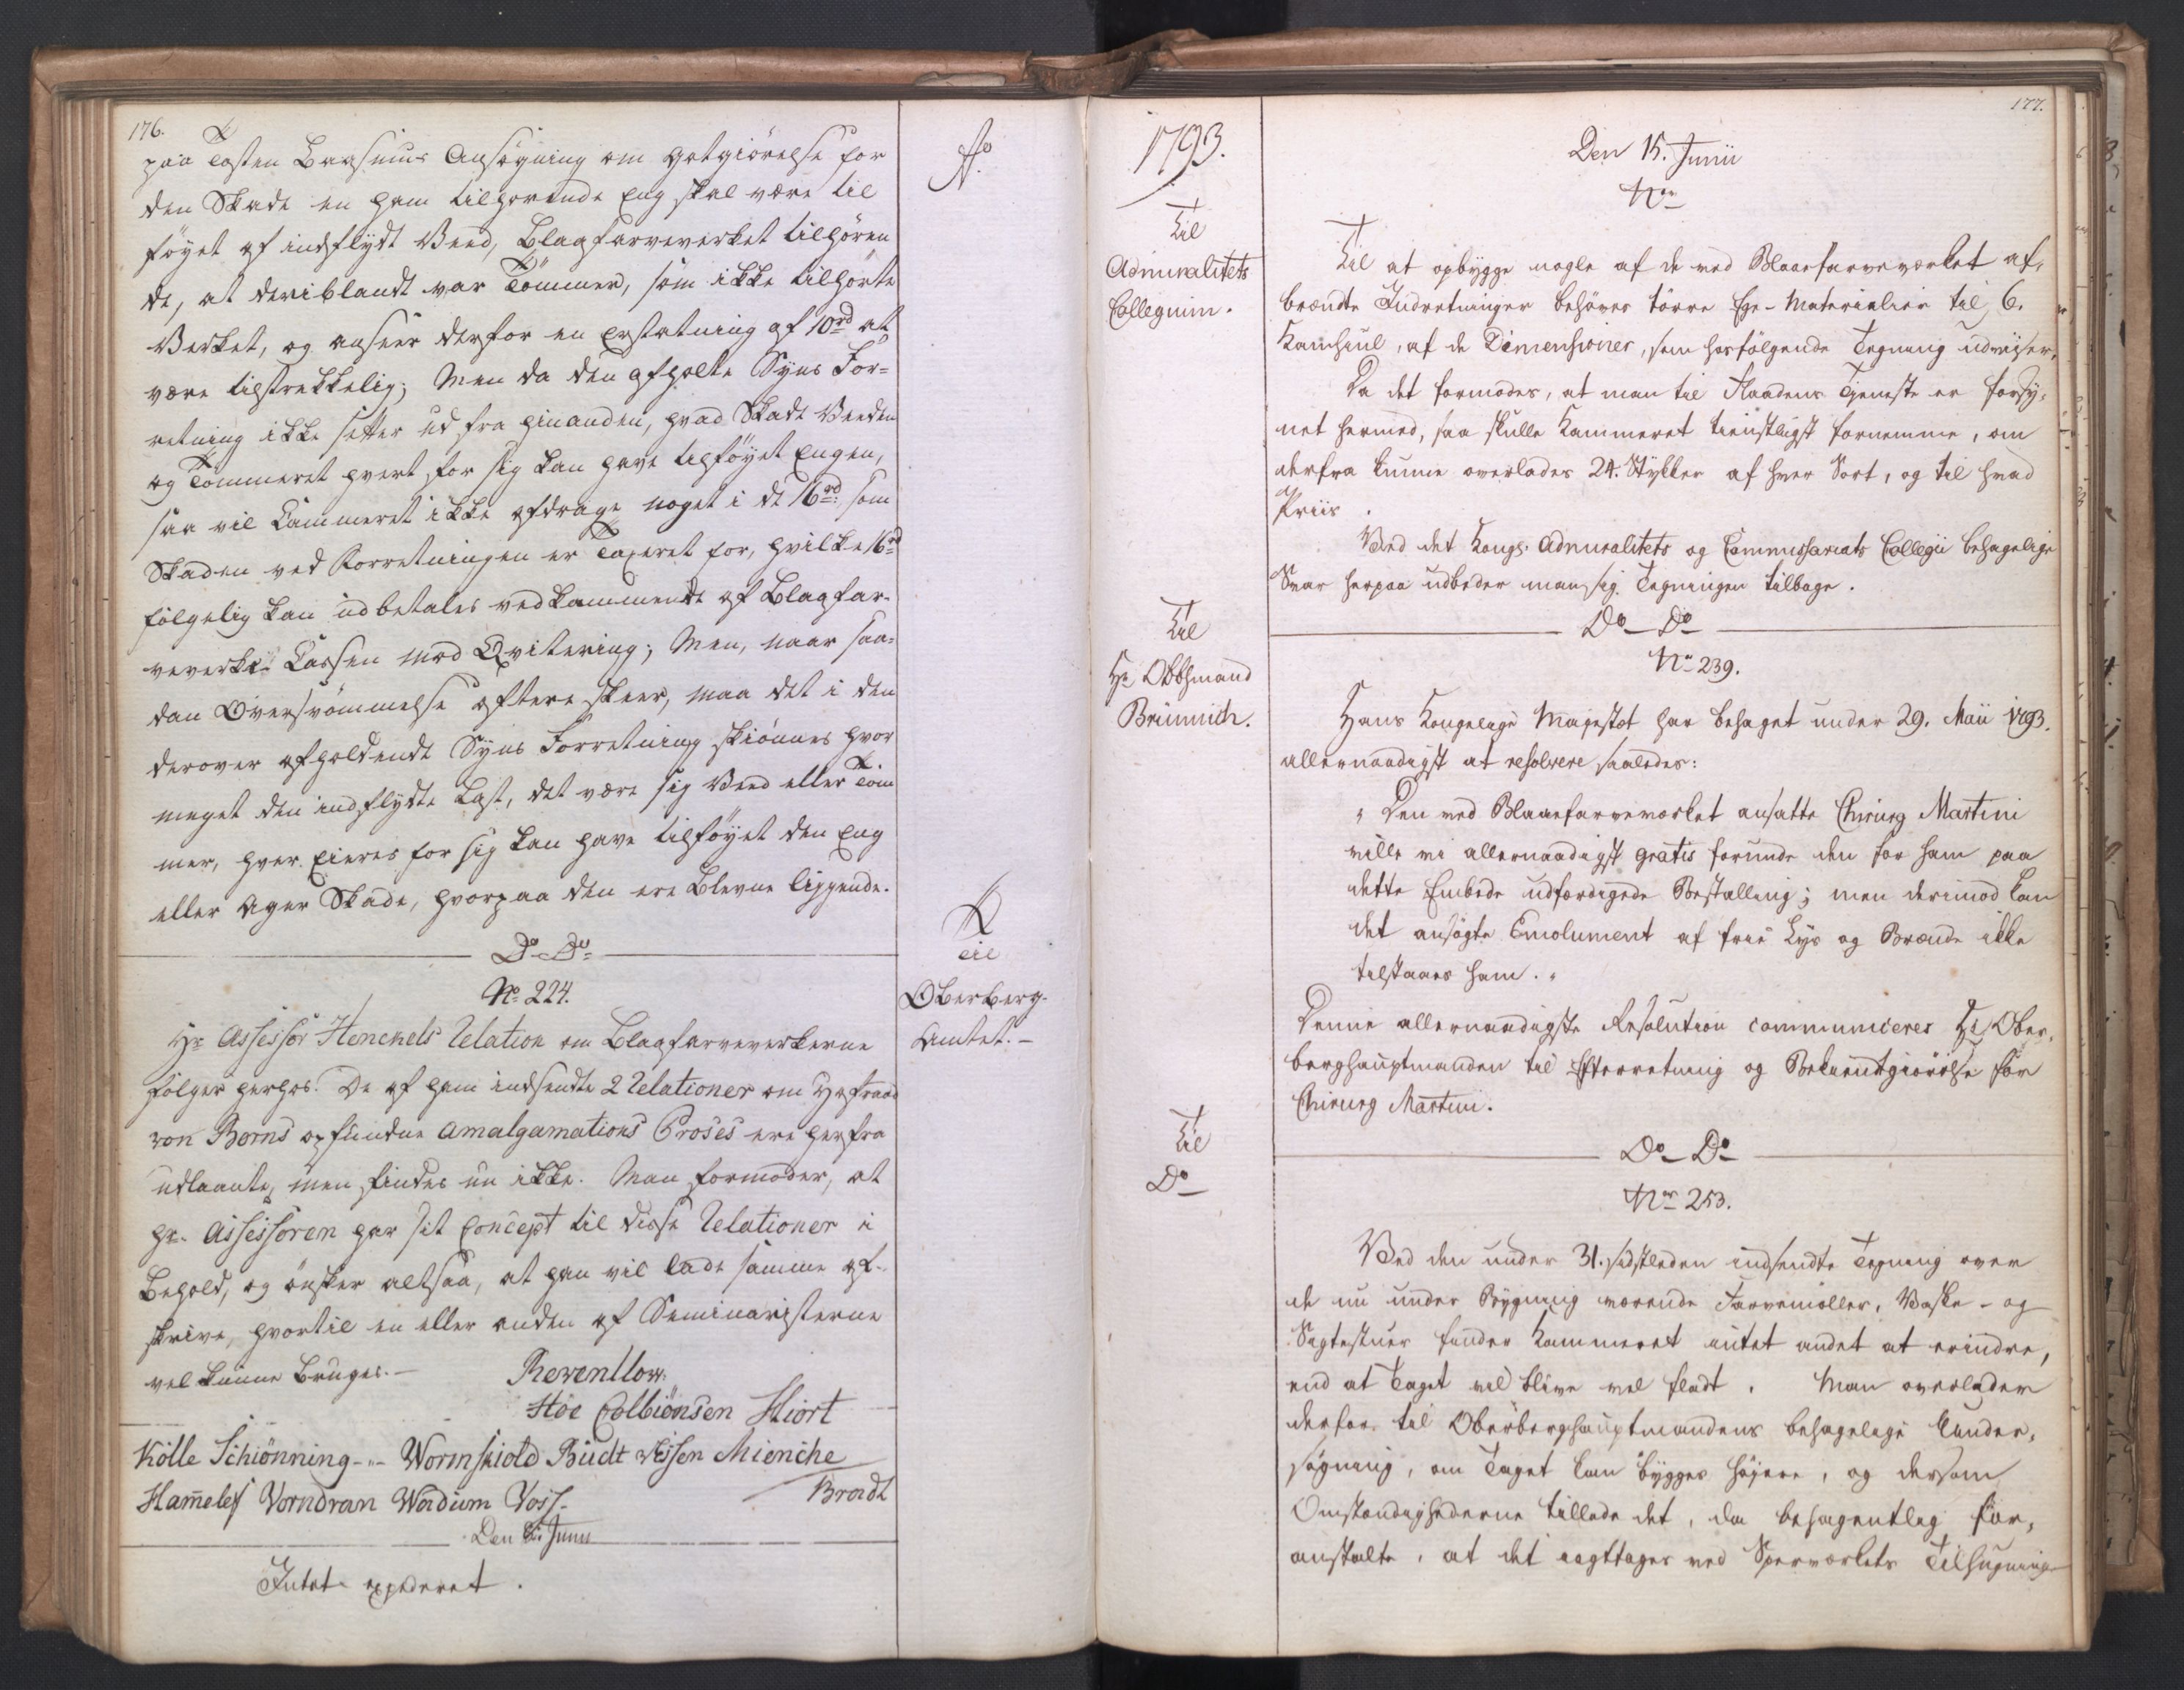 176.
paa Costen Baasmus Ansøgning om Gotgiörelse for
den Skade en ham tilhørende Eng skal være til
föyet af indflydt Veed, Blaafarveverket tilhören
de, at deriblandt var Tömmer, som ikke tilhörte
Verket, og anseer derfor en Erstatning af 10rd at
være tilstrekkelig; Men da den afholte Syns For=
retning ikke setter ud fra hinanden, hvad Skade Veeden
og Tömmeret hvert for sig kan have tilföyet Engen,
saa vil Cammeret ikke afdrage noget i de 16rd: som
Skaden ved Forretningen er Taxeret for, hvilke 16rd
fölgelig kan udbetales vedkommende af Blaafar-
veverks Cassen mod Qvitering; Men, naar saa=
dan Oversvömmelse oftere skeer, maa det i den
derover afholdende Syns Forretning skiönnes hvor
meget den indflydte Last, det være sig Veed eller Töm
mer, hver Eieres for sig kan have tilföyet den Eng
eller Ager Skade, hvorpaa den ere blevne liggende.
Do- Do=
No 224.
Hr Assessor Henckels Relation om Blaafarveverkerne
fölger herhos. De af ham indsendte 2 Relationer om Hofraad
von Borns opfundne Amalgamations Proses ere herfra
udlaante, men findes nu ikke. Man formoder, at
Hr. Assessoren har sit Concept til disse Relationer i
Behold, og önsker altsaa, at han vil lade samme af-
skrive, hvortil en eller anden af Seminaristerne
vel kunne bruges.- Reventlow.
Höe Colbiönsen Hiort
Kölle Schiönning - " - Wormskiold Büdt Essen Mienche
Hammeleff Vorndran Wadum Voss- Brandt
Den 8. Junii
Intet expederet.
Ao
Til
Oberberg-
Amtet.-
1793.
Til
Admiralitets
Collegium.
Til
Hr Obbhmand
Brünnich.
Til
Do
177.
Den 15. Junii
No
Til at opbygge nogle af de ved Blaafarveværket af-
brændte Indretninger behöves törre Ege-Materialier til 6.
Kamhiul, af de Dimensioner, som hosfölgende Tegning udviser.
Da det formodes, at man til Flaadens Tjeneste er forsy-
net hermed, saa skulle Kammeret tienstligst fornemme, om
derfra kunne overlades 24. Stykker af hver Sort, og til hvad
Priis.
Ved det Kongl. Admiralitets og Commissariats Collegii behagelige
Svar herpaa udbeder man sig Tegningen tilbage.
Do - Do
No 239.
Hans Kongelige Majestæt har behaget under 29. Maii 1793.
allernaadigst at resolvere saaledes:
" Den ved Blaaefarveværket ansatte Chirurg Martini
ville vi allernaadigst gratis forunde den for ham paa
dette Embede udfærdigede Bestalling; men derimod kan
det ansögte Emolument af frie Lys og Brænde ikke
tilstaaes ham. "
Denne allernaadigste Resolution communiceres Hr Ober-
berghauptmanden til Efterretning og Bekiendtgiörelse for
Chirurg Martini.
Do - Do
No 253.
Ved den under 31. sidstleden indsendte Tegning over
de nu under Bygning værende Farvemöller, Vaske- og
Sigtestuer finder Kammeret intet andet at erindre,
end at Taget vil blive vel fladt. Man overlader
derfor til Oberberghauptmandens behagelige Under-
søgning, om Taget kan bygges höjere, og dersom
Omstændighederne tillade det, da behagentlig for-
anstalte, at det iagttages ved Sperværkets Tilhugning